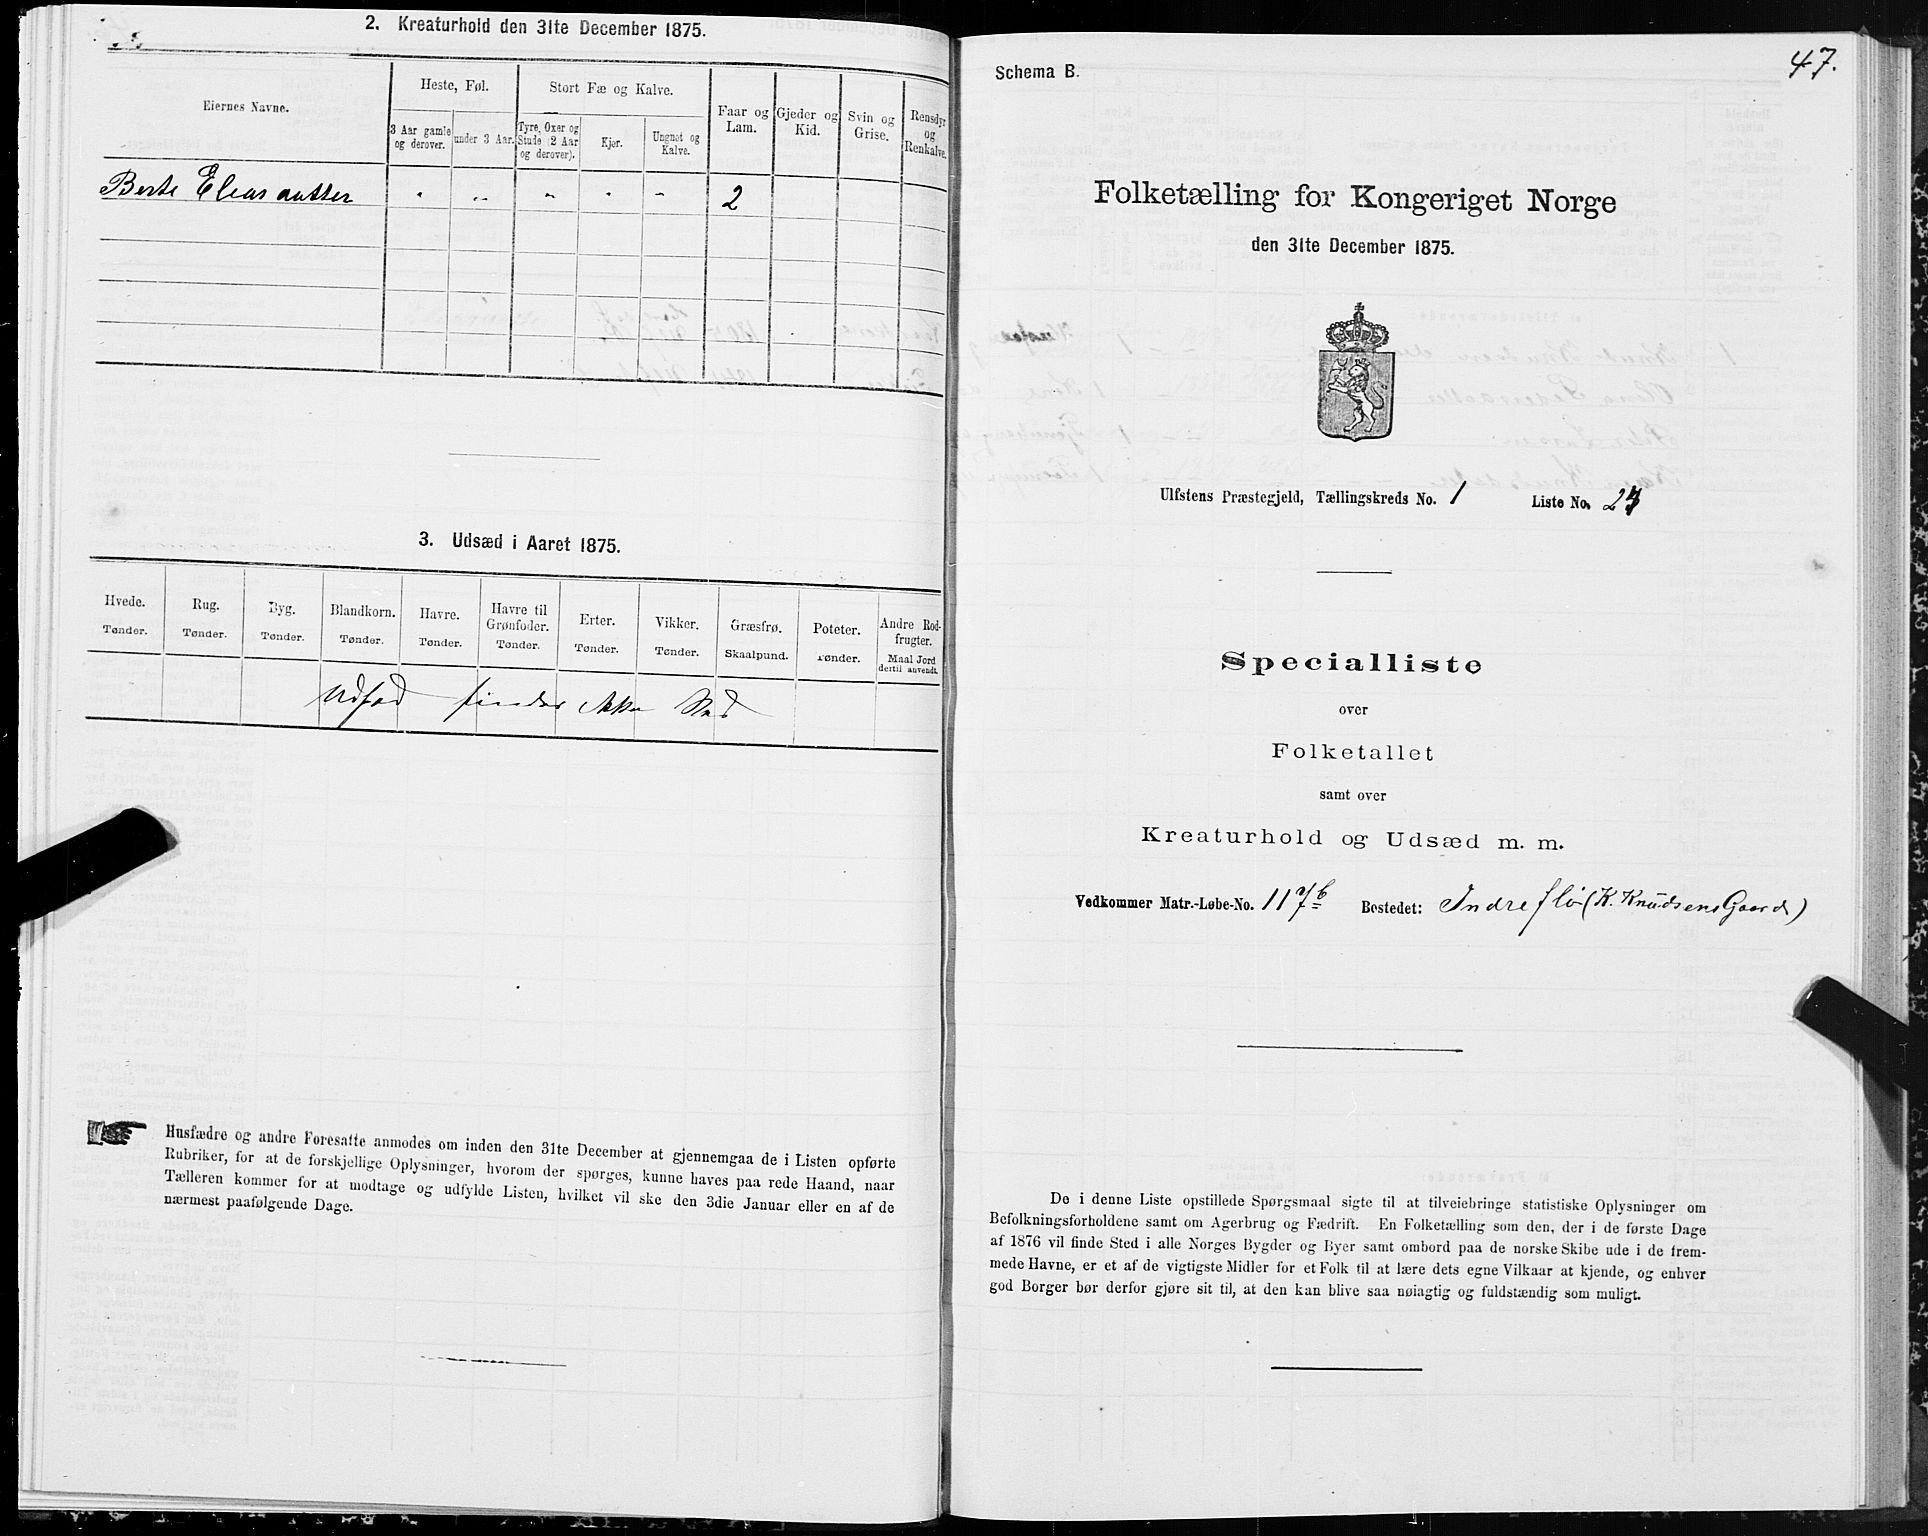 2. Kreaturhold den 31te December 1875.
Eiernes Navne.
Heste, Føl.
Stort Fæ og Kalve.
Faar og Lam.
Gjeder og Kid.
Svin og Grise.
Rensdyr og Renkalve.
3 Aar gamle og derover.
under 3 Aar.
Tyre, Oxer og Stude (2 Aar og derover).
Kjør.
Ungnøt og Kalve.
Berte Eliasdatter " " " " " 2
3. Udsæd i Aaret 1875.
Hvede. Tønder.
Rug. Tønder.
Byg. Tønder.
Blandkorn. Tønder.
Havre. Tønder.
Havre til Grønfoder. Tønder.
Erter. Tønder.
Vikker. Tønder.
Græsfrø. Skaalpund.
Poteter. Tønder.
Andre Rodfrugter. Maal Jord dertil anvendt.
Udsæd finder ikke Sted
Husfædre og andre Foresatte anmodes om inden den 31te December at gjennemgaa de i Listen opførte
Rubriker, for at de forskjellige Oplysninger, hvorom der spørges, kunne haves paa rede Haand, naar
Tælleren kommer for at modtage og udfylde Listen, hvilket vil ske den 3die Januar eller en af de
nærmest paafølgende Dage.
47.
Schema B.
Folketælling for Kongeriget Norge
den 31te December 1875.
Ulfstens Præstegjeld, Tællingskreds No. 1 Liste No.
Specialliste
over
Folketallet
samt over
Kreaturhold og Udsæd m. m.
Vedkommer Matr.-Løbe-No. 117b Bostedet: Indreflø (K. Knudsens Gaard)
De i denne Liste opstillede Spørgsmaal sigte til at tilveiebringe statistiske Oplysninger om
Befolkningsforholdene samt om Agerbrug og Fædrift. En Folketælling som den, der i de første Dage
af 1876 vil finde Sted i alle Norges Bygder og Byer samt ombord paa de norske Skibe ude i de frem-
mede Havne, er et af de vigtigste Midler for et Folk til at lære dets egne Vilkaar at kjende, og enhver
god Borger bør derfor gjøre sit til, at den kan blive saa nøiagtig og fuldstændig som muligt.